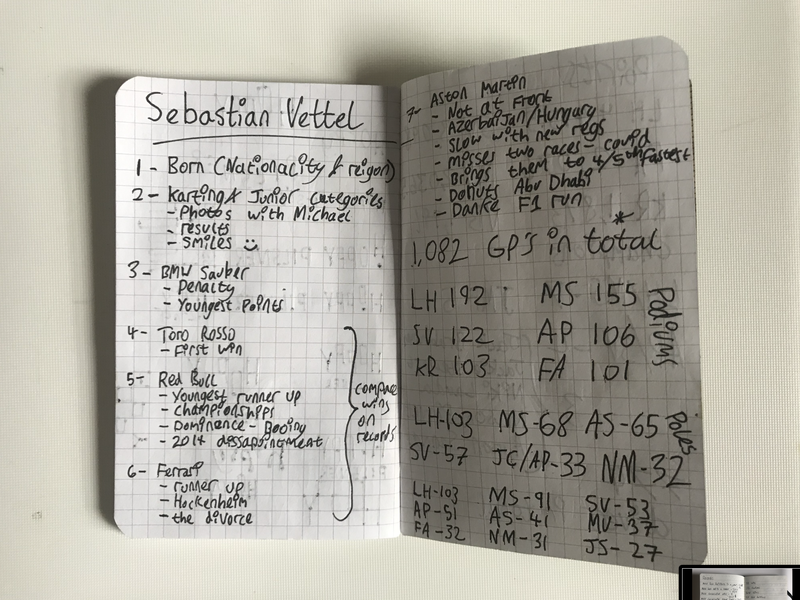 Sebastian Vettel
1 - Born (Nationality & reigon)
2 - Karting & Junior Categories
- Photos with Michael
- results
- smiles
3 - BMW Sauber
- Penalty
- Youngest Points
4 - Toro Rosso
- First win
5 - Red Bull
- Youngest runner up
- Championships
- Dominence - Booing
- 2014 dissapointment
6 - Ferrari
- runner up
- Hockenheim
- the divorce
compare
wins
on
records
7- Aston Martin
- Not at Front
- Azerbaijan/Hungary
- Slow with new regs
- misses two races - covid
- Brings them to 4/5th fastest
- Donuts Abu Dhabi
- Danke F1 run
1,082 GP's in total *
LH 192 MS 155
SV 122 AP 106
KR 103 FA 101
Podiums
LH-103 MS-68 AS-65
SV-57 JC/AP-33 NM-32
Poles
LH-103 MS-91 SV-53
AP-51 AS-41 MV-37
FA-32 NM-31 JS-27